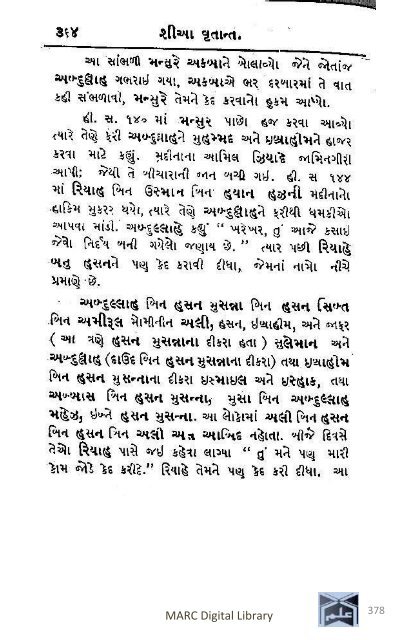 ૩૬૪ શીઆ વૃતાન્ત.
આ સાંભળી મન્સુરે અકબાને બોલાવ્યો જેને જોતાંજ
અબ્દુલ્લાહ ગભરાઇ ગયા, અકબાએ ભર દરબારમાં તે વાત
કહી સંભળાવી, મન્સુરે તેમને કેદ કરવાનો હુકમ આપ્યો.
હી. સ. ૧૪૦ માં મન્સુર પાછો હજ કરવા આવ્યો
ત્યારે તેણે ફરી અબ્દુલ્લાહને મુહમ્મદ અને ઇબ્રાહીમને હાજર
કરવા માટે કહ્યું. મદીનાના આમિલ ઝિયાદે જામિનગીરી
આપી; જેથી તે બીચારાની જાન બચી ગઇ. હી. સ ૧૪૪
માં રિયાહ બિન ઉસ્માન બિન હયાન હુઝની મદીનાનો
હાકિમ મુકરર થયો, ત્યારે તેણે અબ્દુલ્લાહને ફરીથી ધમકીઓ
આપવા માંડી. અબ્દુલ્લાહે કહ્યું “ ખરેખર, તું આજે કસાઇ
જેવો નિર્દય બની ગયેલો જણાય છે. ” ત્યાર પછી રિયાહે
બનુ હસનને પણ કેદ કરાવી દીધા, જેમનાં નામો નીચે
પ્રમાણે છે.
અબ્દુલ્લાહ બિન હસન મુસન્ના બિન હસન સિબ્ત
બિન અમીરૂલ મોમીનીન અલી, હસન, ઇબ્રાહીમ, અને જાફર
( આ ત્રણે હસન મુસન્નાના દીકરા હતા ) સુલેમાન અને
અબ્દુલ્લાહ (દાઉદ બિન હસન મુસન્નાના દીકરા) તથા ઇબ્રાહીમ
બિન હસન મુસન્નાના દીકરા ઇસ્માઇલ અને ઇસ્હાક, તથા
અબ્બાસ બિન હસન મુસન્ના, મુસા બિન અબ્દુલ્લાહ
મહેઝ, ઇબ્ને હસન મુસન્ના. આ લોકોમાં અલી બિન હસન
બિન હસન બિન અલી અત્ર આબિદ નહોતા. બીજે દિવસે
તેઓ રિયાહ પાસે જઇ કહેવા લાગ્યા “ તું મને પણ મારી
કોમ જોડે કેદ કરીદે.” રિયાહે તેમને પણ કેદ કરી દીધા. આ
MARC Digital Library
علم
378